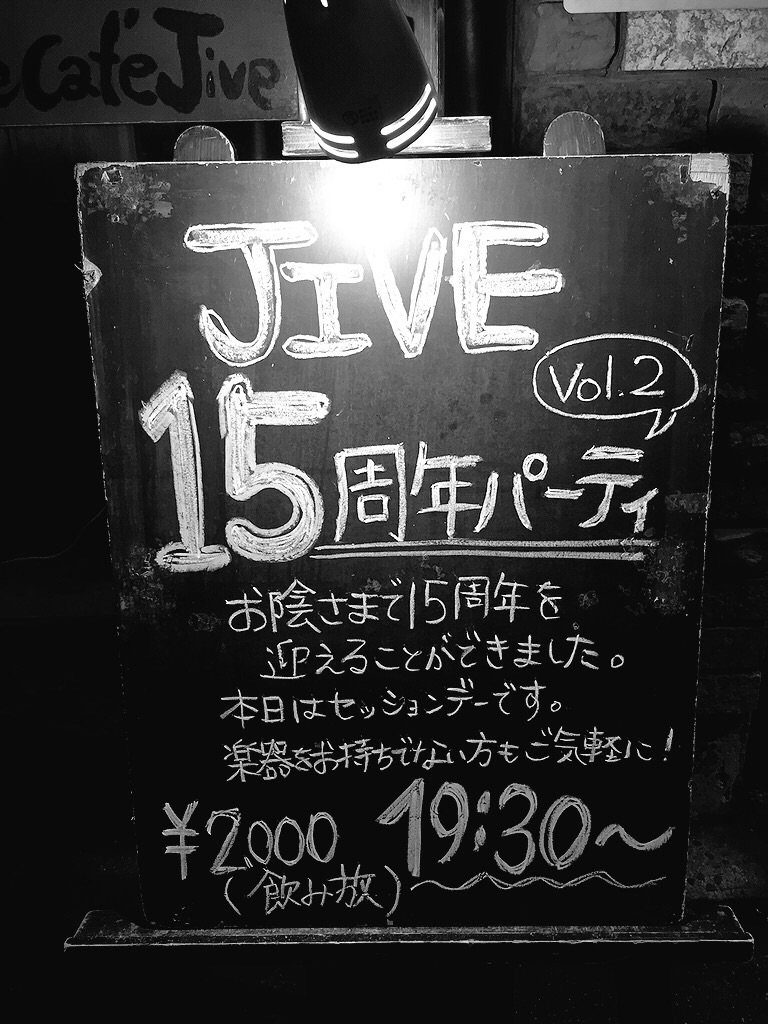 Café Jive
JIVE
Vol.2
15周年パーティ
お陰さまで15周年を
迎えることができました。
本日はセッションデーです。
楽器をお持ちでない方もご気軽に!
¥2,000 19:30〜
(飲み放)